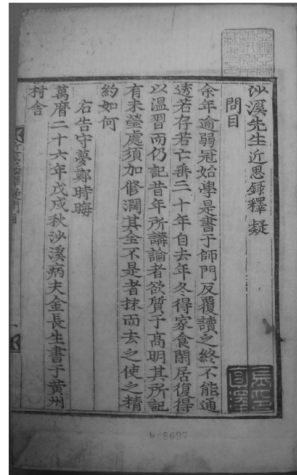 沙溪先生近思録釋疑
問目
余年逾弱冠始學是書于師門反覆讀之終不能通
透若存若亡垂二十年自去年冬得家食閑居復得
以溫習而仍記昔年所講論者欲質于高明其所記
有未瑩處須加修潤其全不是者抹而去之使之精
約如何
右告守夢鄭時晦
萬曆二十六年戊戌秋沙溪病夫金長生書于黄州
村舍